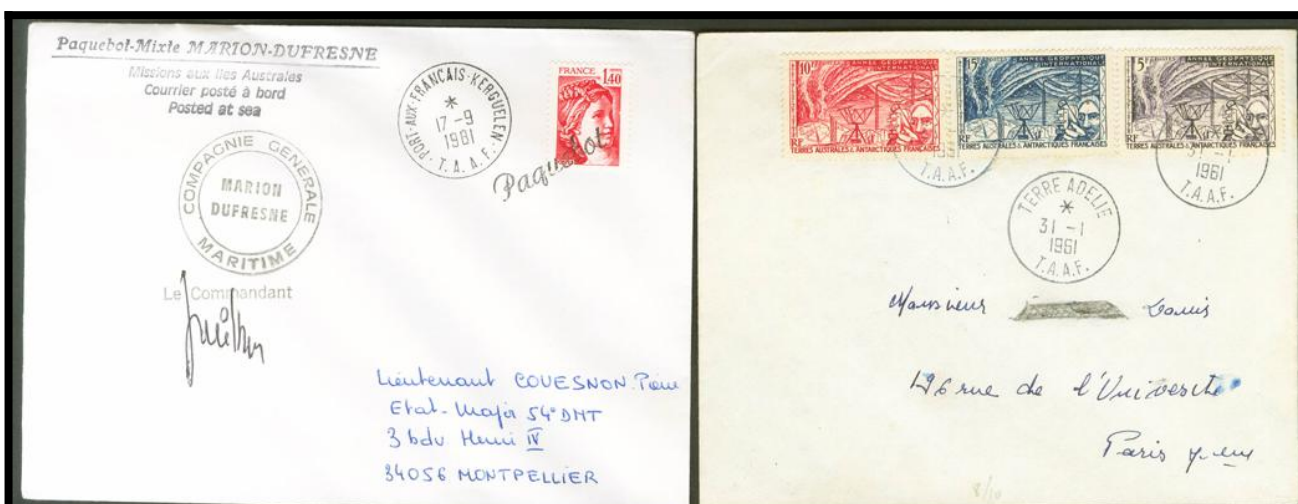 Paquebot-Mixte MARION-DUFRESNE
Missions aux Iles Australes
Courrier posté à bord
Posted at sea
COMPAGNIE GENERALE
MARION
DUFRESNE
MARITIME
Le Commandant
PORT-AUX-FRANCAIS-KERGUELEN
*
17-9
1981
T.A.A.F.
FRANCE
1,40
Paquebot
Lieutenant COUESNON Pierre
Etat-Major 54° DMT
3 bdv Henri IV
34056 MONTPELLIER
10F
ANNÉE GÉOPHYSIQUE
INTERNATIONALE
RF
TERRES AUSTRALES & ANTARCTIQUES FRANÇAISES
15F
ANNÉE GÉOPHYSIQUE
INTERNATIONALE
RF
TERRES AUSTRALES & ANTARCTIQUES FRANÇAISES
5F
ANNÉE GÉOPHYSIQUE
INTERNATIONALE
RF
TERRES AUSTRALES & ANTARCTIQUES FRANÇAISES
1961
T.A.A.F.
31 -1
1961
T.A.A.F.
TERRE ADELIE
*
31 -1
1961
T.A.A.F.
Monsieur Louis
126 rue de l'Université
Paris
8/10